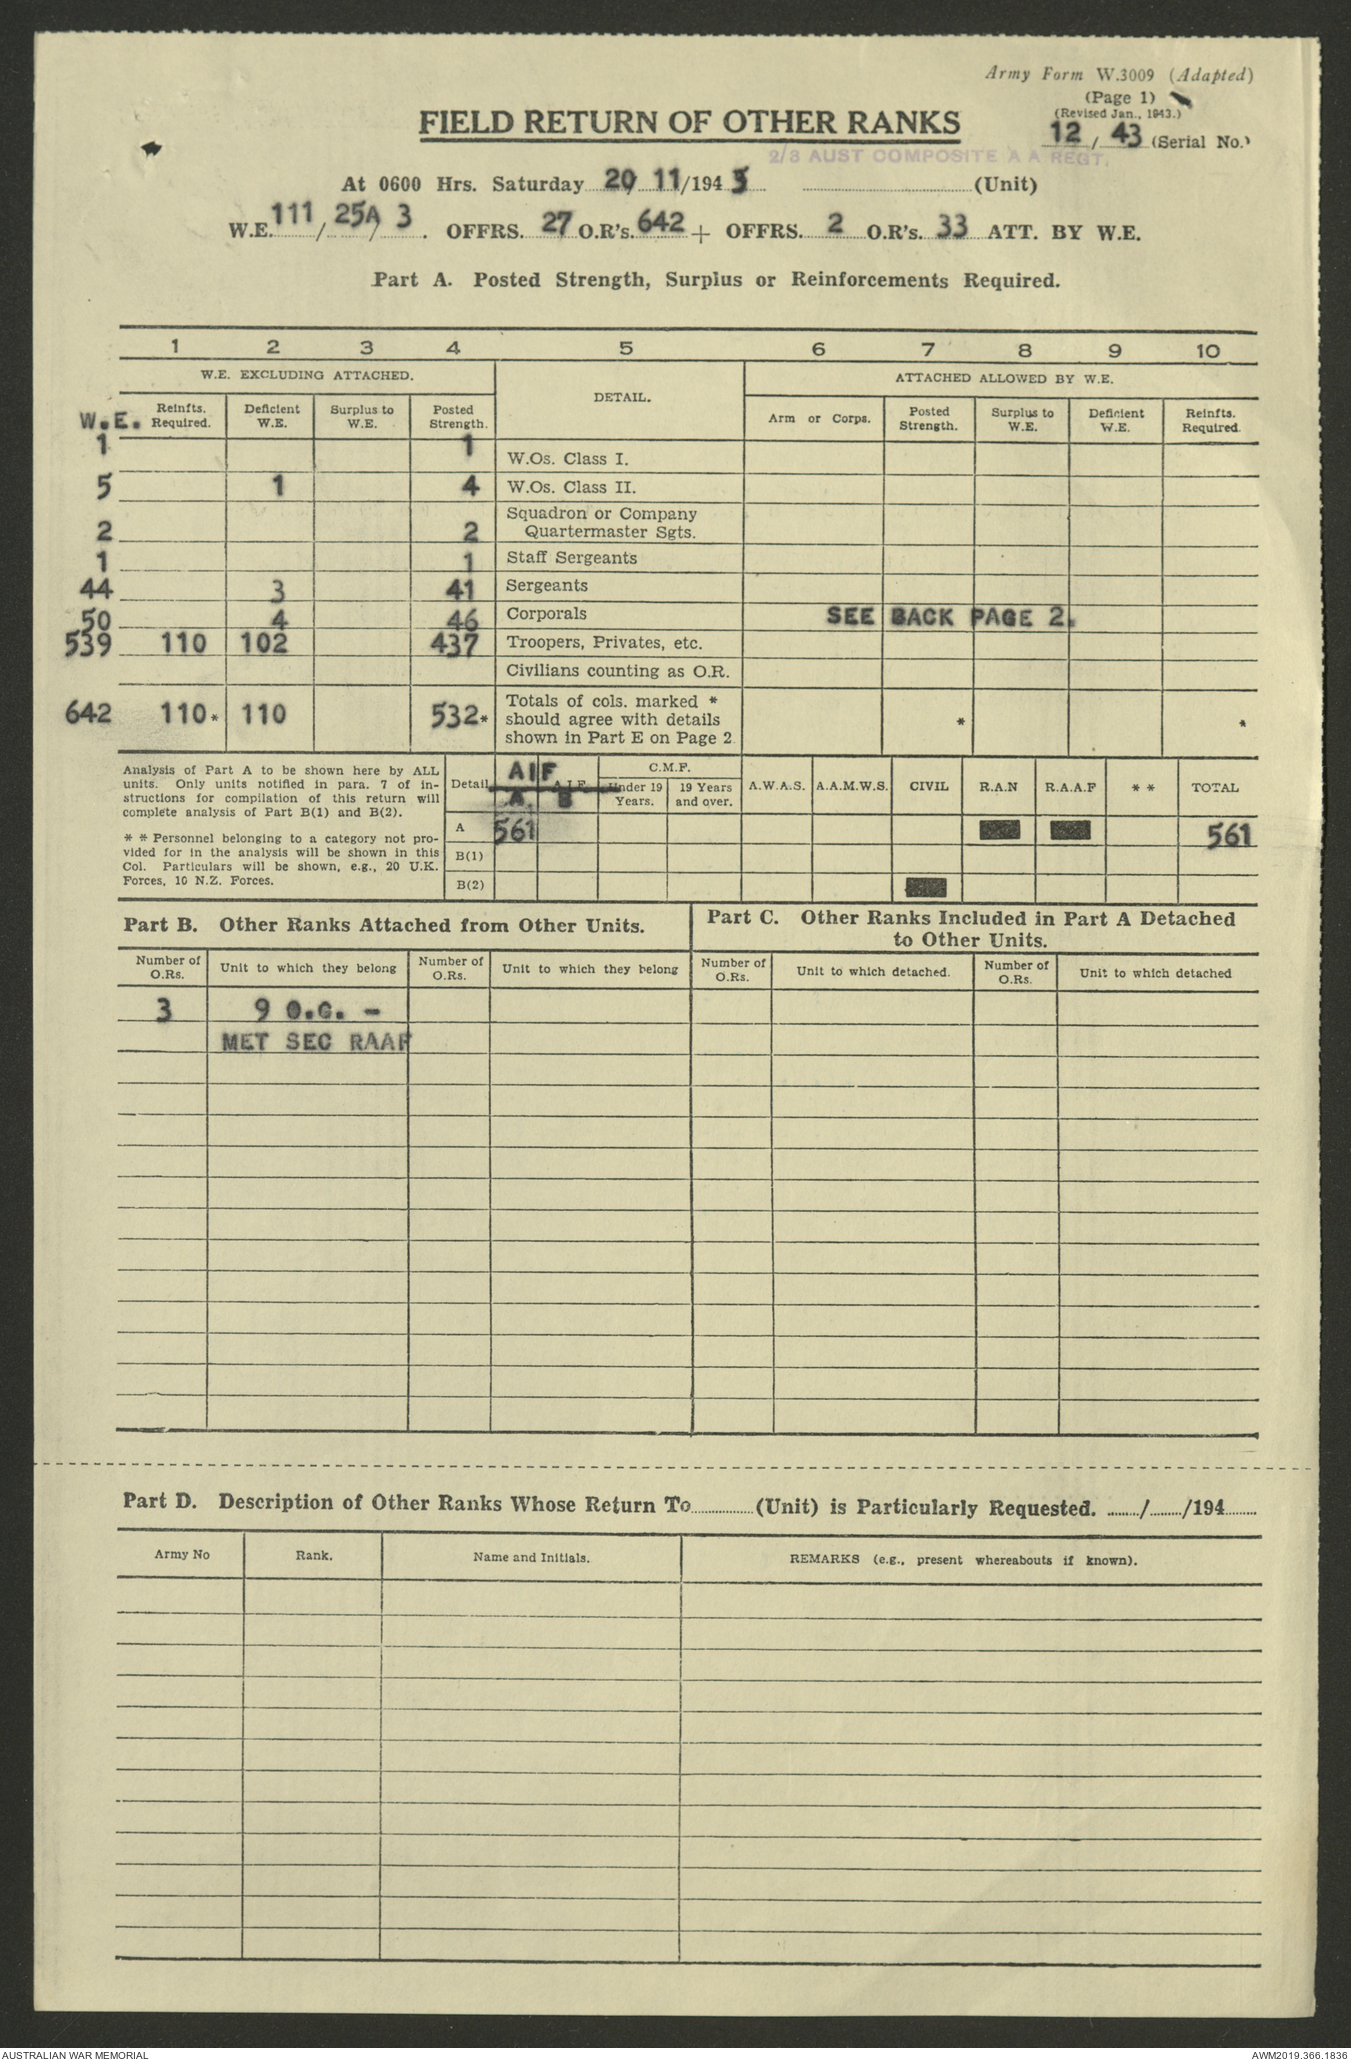 Army Form W.3009 (Adapted)
(Page 1)
(Revised Jan., 1943.)
FIELD RETURN OF OTHER RANKS
12 / 43 (Serial No.)
2/3 AUST COMPOSITE A A REGT.
At 0600 Hrs. Saturday 20 11/1943 (Unit)
W.E. 111 / 25A / 3 . OFFRS. 27 O.R's. 642 + OFFRS. 2 O.R's. 33 ATT. BY W.E.
Part A. Posted Strength, Surplus or Reinforcements Required.
1 2 3 4 5 6 7 8 9 10
W.E. EXCLUDING ATTACHED. DETAIL. ATTACHED ALLOWED BY W.E.
W.E. Reinfts. Required. Deficient W.E. Surplus to W.E. Posted Strength. Arm or Corps. Posted Strength. Surplus to W.E. Deficient W.E. Reinfts. Required.
1 1 W.Os. Class I.
5 1 4 W.Os. Class II.
2 2 Squadron or Company Quartermaster Sgts.
1 1 Staff Sergeants
44 3 41 Sergeants
50 4 46 Corporals SEE BACK PAGE 2.
539 110 102 437 Troopers, Privates, etc.
Civilians counting as O.R.
642 110* 110 532* Totals of cols. marked * should agree with details shown in Part E on Page 2 * *
Analysis of Part A to be shown here by ALL
units. Only units notified in para. 7 of in-
structions for compilation of this return will
complete analysis of Part B(1) and B(2).
* * Personnel belonging to a category not pro-
vided for in the analysis will be shown in this
Col. Particulars will be shown, e.g., 20 U.K.
Forces, 10 N.Z. Forces.
Detail AIF A.I.F. C.M.F. A.W.A.S. A.A.M.W.S. CIVIL R.A.N R.A.A.F * * TOTAL
A. B Under 19 Years. 19 Years and over.
A 561 561
B(1)
B(2)
Part B. Other Ranks Attached from Other Units.
Part C. Other Ranks Included in Part A Detached
to Other Units.
Number of O.Rs. Unit to which they belong Number of O.Rs. Unit to which they belong Number of O.Rs. Unit to which detached. Number of O.Rs. Unit to which detached
3 9 O.G. -
MET SEC RAAF
Part D. Description of Other Ranks Whose Return To (Unit) is Particularly Requested. / /194
Army No Rank. Name and Initials. REMARKS (e.g., present whereabouts if known).
AUSTRALIAN WAR MEMORIAL AWM2019.366.1836